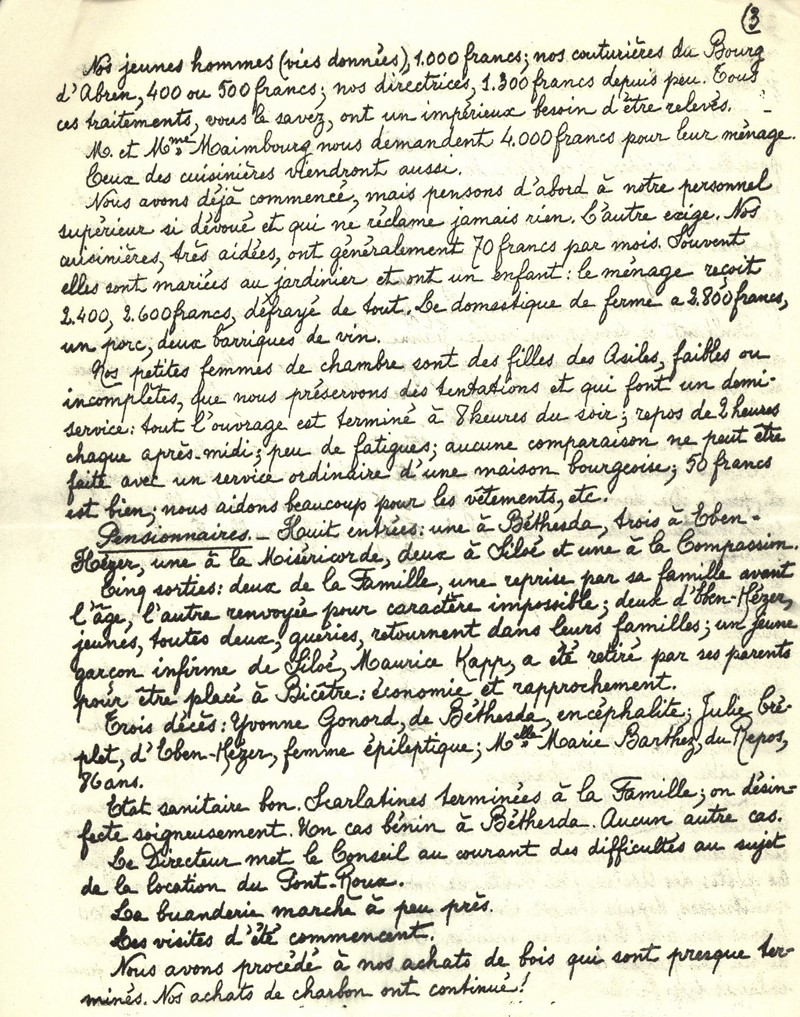 (3
Nos jeunes hommes (vies données), 1.000 francs; nos couturières du Bourg
d'Abren, 400 ou 500 francs; nos directrices, 1.300 francs depuis peu. Tous
ces traitements, vous le savez, ont un impérieux besoin d'être relevés.
M. et Mme Maimbourg nous demandent 4.000 francs pour leur ménage.
Ceux des cuisinières viendront aussi.
Nous avons déjà commencé, mais pensons d'abord à notre personnel
supérieur si dévoué et qui ne réclame jamais rien. L'autre exige. Nos
cuisinières, très aidées, ont généralement 70 francs par mois. Souvent
elles sont mariées au jardinier et ont un enfant: le ménage reçoit
2.400, 2.600 francs, défrayé de tout. Le domestique de ferme a 2.800 francs,
un porc, deux barriques de vin.
Nos petites femmes de chambre sont des filles des Asiles, faibles ou
incomplètes, que nous préservons des tentations et qui font un demi-
service: tout l'ouvrage est terminé à 8 heures du soir; repos de 2 heures
chaque après-midi; peu de fatigues; aucune comparaison ne peut être
faite avec un service ordinaire d'une maison bourgeoise; 50 francs
est bien; nous aidons beaucoup pour les vêtements, etc.
Pensionnaires. — Huit entrées: une à Béthesda, trois à Eben-
Hézer, une à la Miséricorde, deux à Siloé et une à la Compassion.
Cinq sorties: deux de la Famille, une reprise par sa famille avant
l'âge, l'autre renvoyée pour caractère impossible; deux d'Eben-Hézer,
jeunes, toutes deux, guéries, retournent dans leurs familles; un jeune
garçon infirme de Siloé, Maurice Kapp, a été retiré par ses parents
pour être placé à Bicêtre: économie et rapprochement.
Trois décès: Yvonne Gonord, de Béthesda, encéphalite; Julie Cré-
plet, d'Eben-Hézer, femme épileptique; Melle Marie Barthez, du Repos,
86 ans.
Etat sanitaire bon. Scarlatines terminées à la Famille; on désin-
fecte soigneusement. Un cas bénin à Béthesda. Aucun autre cas.
Le Directeur met le Conseil au courant des difficultés au sujet
de la location du Pont-Roux.
La buanderie marche à peu près.
Les visites d'été commencent.
Nous avons procédé à nos achats de bois qui sont presque ter-
minés. Nos achats de charbon ont continué!